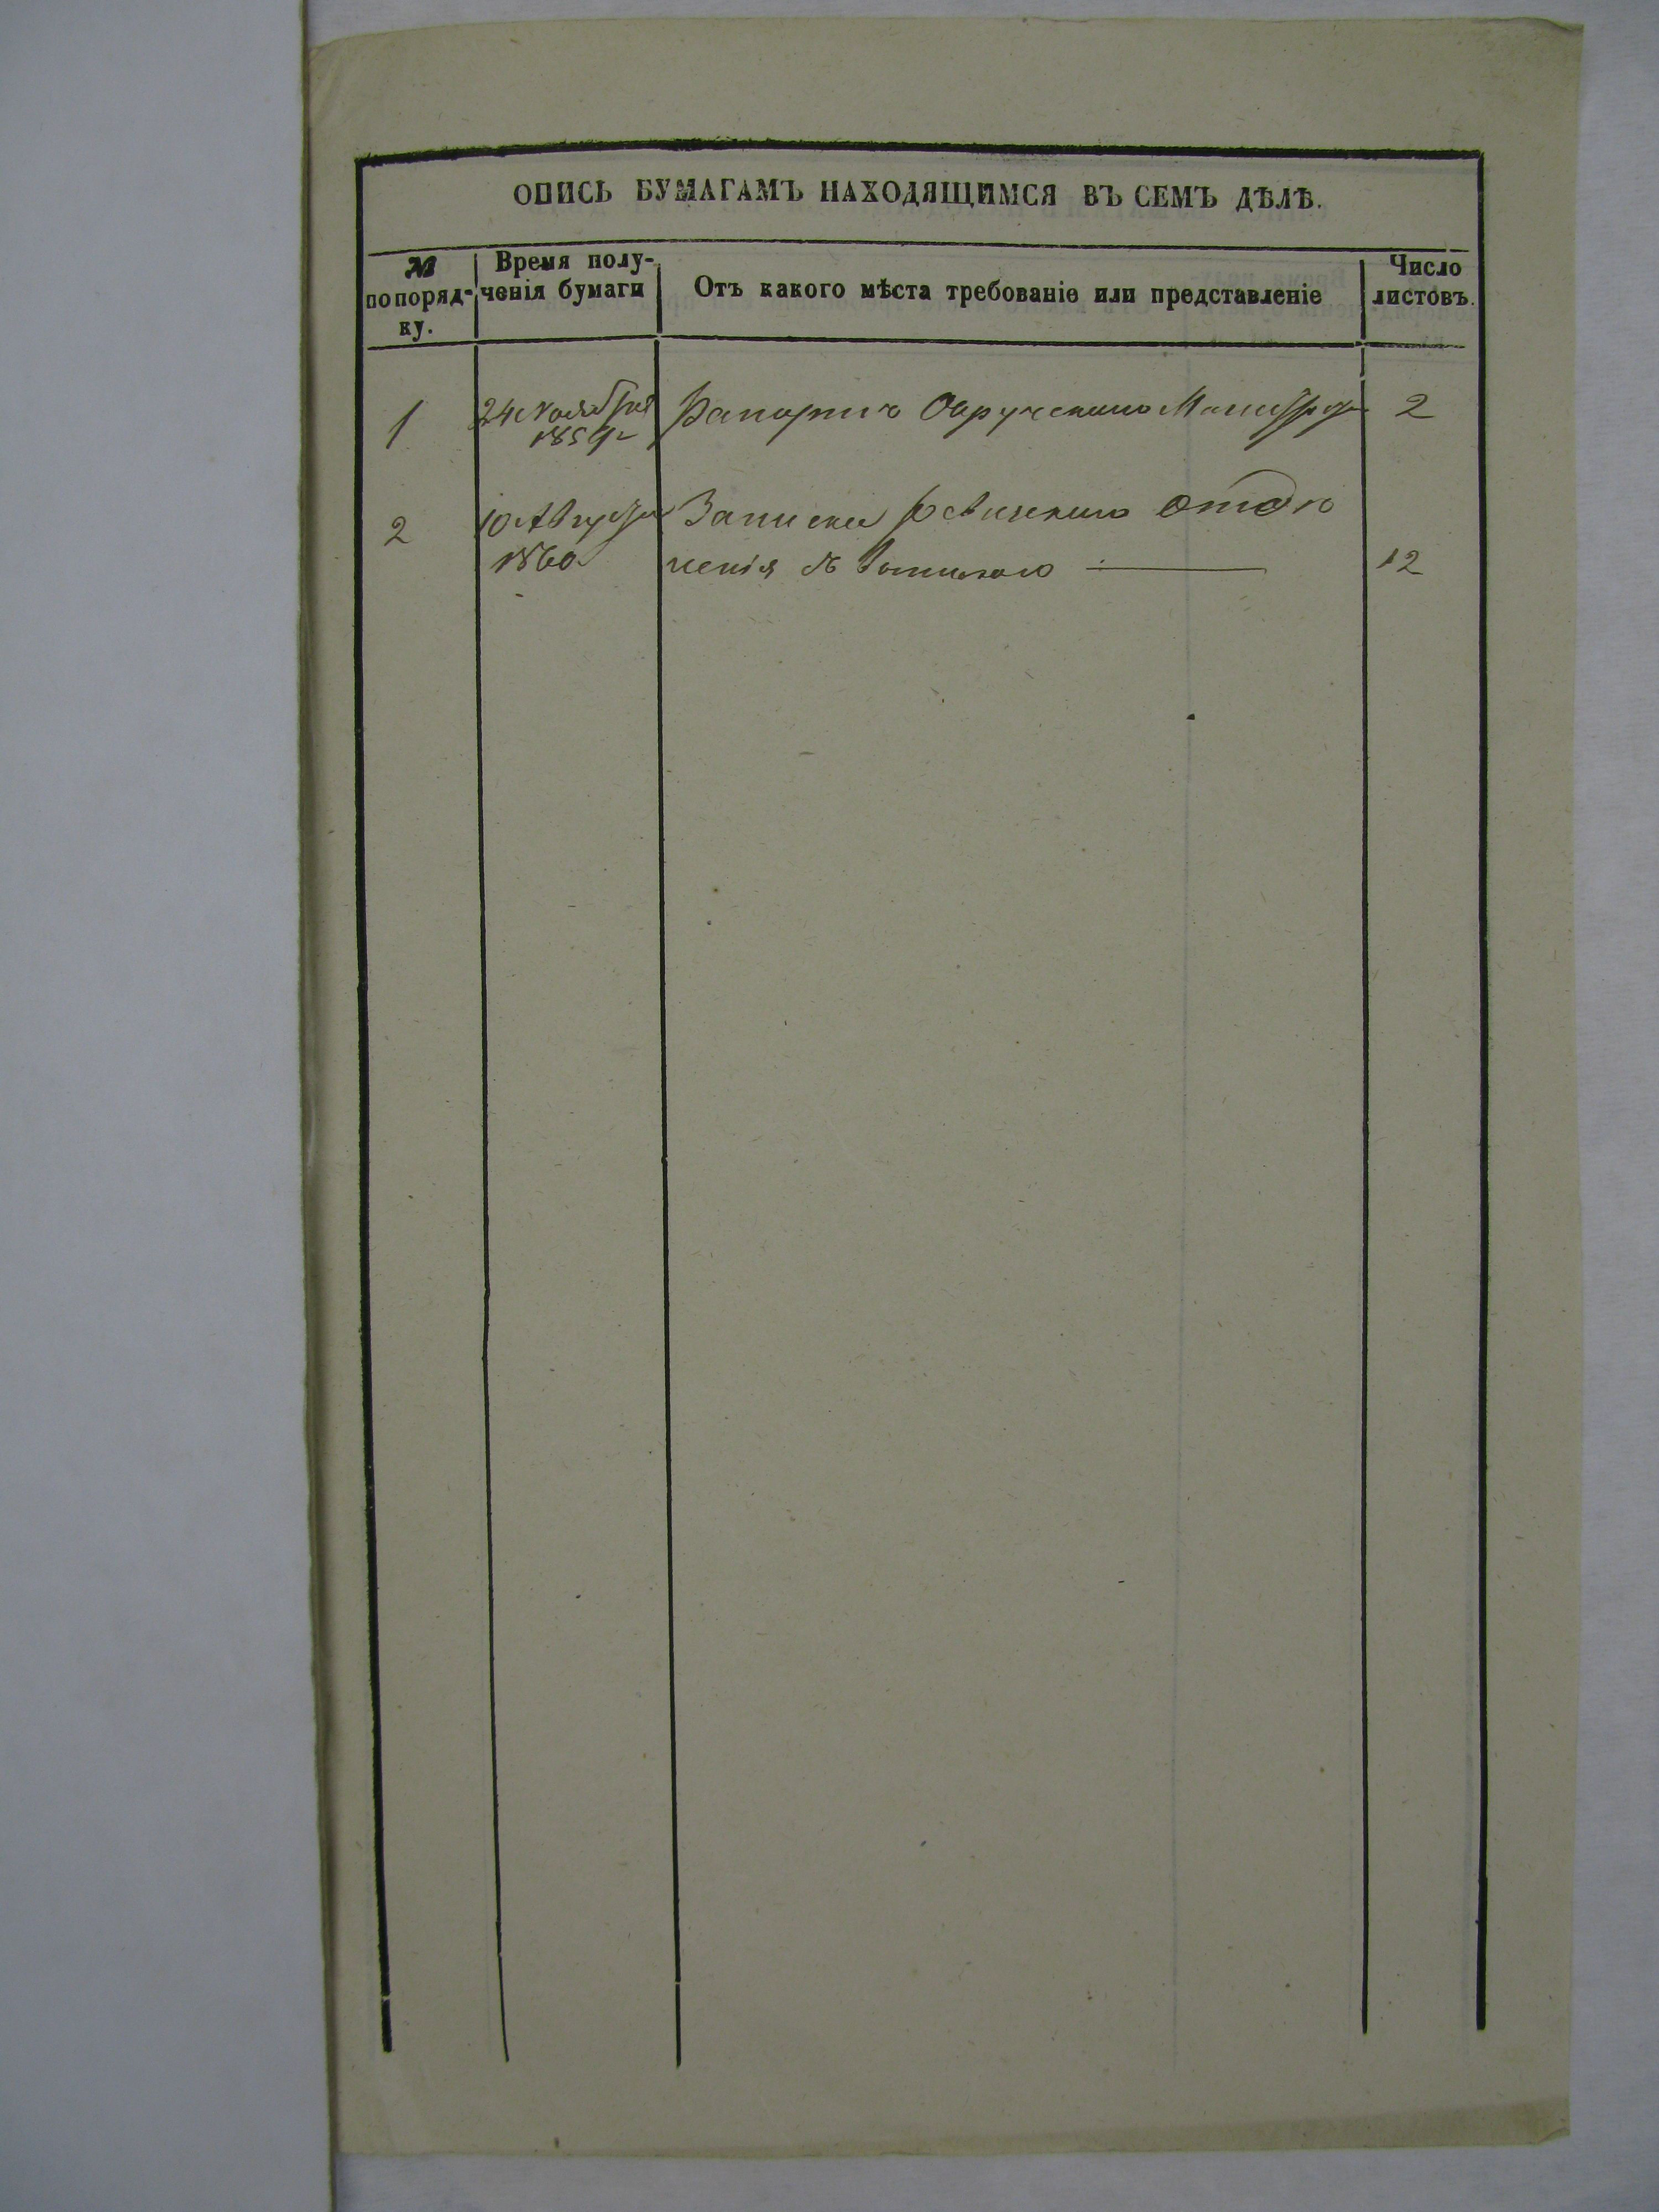 ОПИСЬ БУМАГАМЪ НАХОДЯЩИМСЯ ВЪ СЕМЪ ДѢЛѢ.
№ по поряд-ку.
Время полу-ченія бумаги
Отъ какого мѣста требованіе или представленіе
Число листовъ.
1
24 Ноября
1859 г.
Рапортъ Овручскаго Магистрата
2
2
10 Августа
1860
Записка Ревизскаго Отдѣ
ленія съ
12